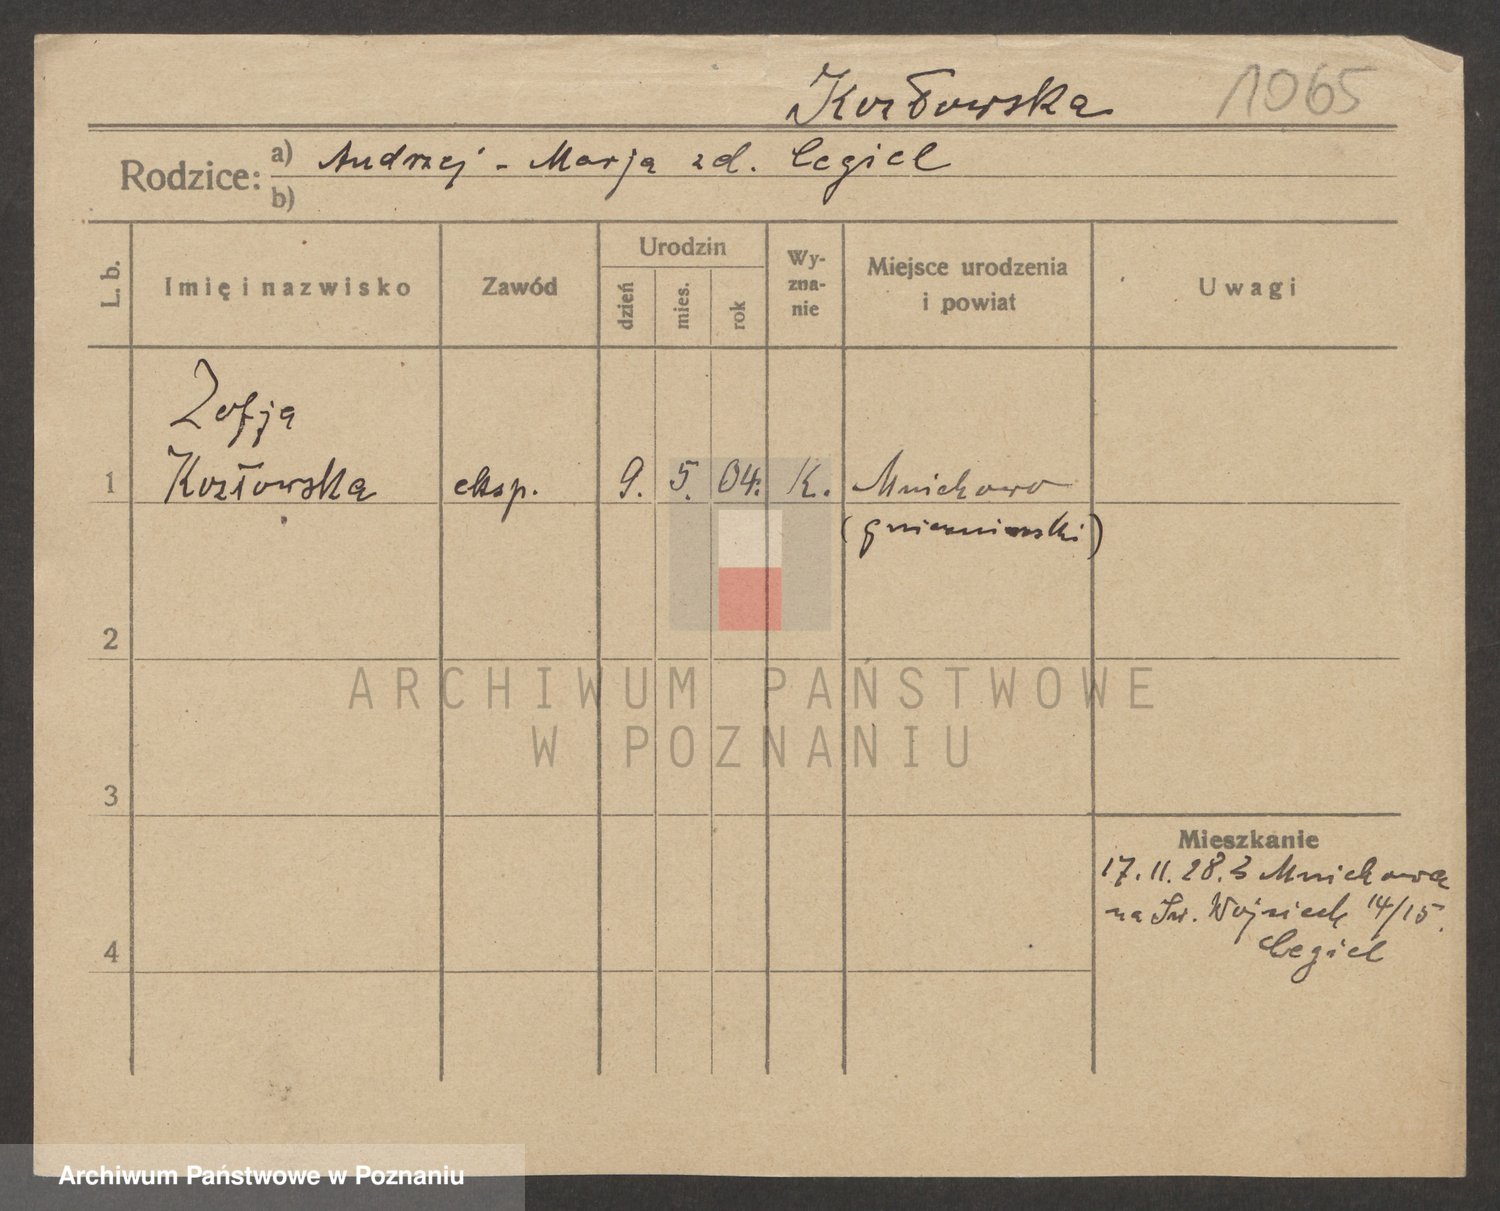 Kozłowska 1065
Rodzice: a) Andrzej - Marja zd. Cegiel
b)
L. b.
Imię i nazwisko
Zawód
Urodzin
dzień
mies.
rok
Wy-
zna-
nie
Miejsce urodzenia
i powiat
Uwagi
Zofja
1 Kozłowska eksp. 9. 5. 04. K. Mnichowo
(gnieźnieński)
2
ARCHIWUM PAŃSTWOWE
W POZNANIU
3
Mieszkanie
17. 11. 28. z Mnichowa
na Św. Wojciech 14/15.
Cegiel
4
Archiwum Państwowe w Poznaniu